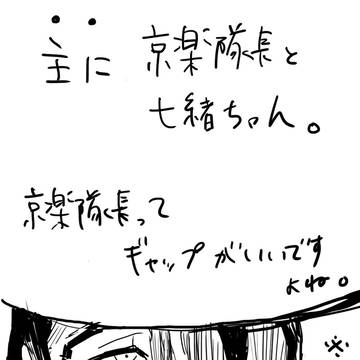 主に 京楽隊長と
七緒ちゃん。
京楽隊長って
ギャップがいいです
よね。
※